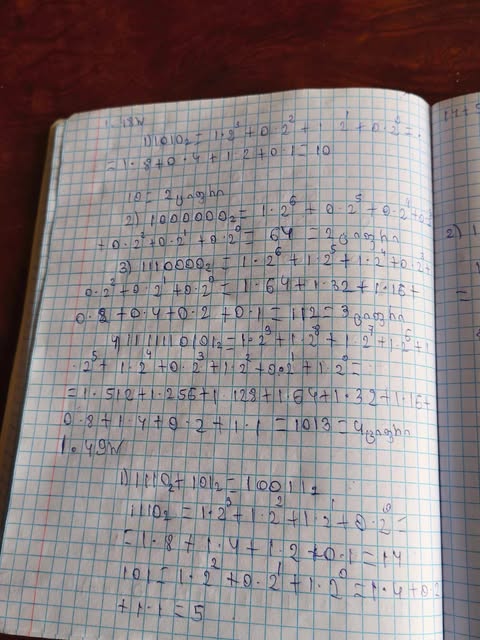 1.48W
1) 1010₂ = 1·2³ + 0·2² + 1·2¹ + 0·2⁰ =
= 1·8 + 0·4 + 1·2 + 0·1 = 10
10 = 2 ցիֆր
2) 1000000₂ = 1·2⁶ + 0·2⁵ + 0·2⁴ + 0·2³
+ 0·2² + 0·2¹ + 0·2⁰ = 64 = 2
3) 1110000₂ = 1·2⁶ + 1·2⁵ + 1·2⁴ + 0·2³ +
0·2² + 0·2¹ + 0·2⁰ = 1·64 + 1·32 + 1·16 +
0·8 + 0·4 + 0·2 + 0·1 = 112 = 3
4) 1111110101₂ = 1·2⁹ + 1·2⁸ + 1·2⁷ + 1·2⁶ + 1
·2⁵ + 1·2⁴ + 0·2³ + 1·2² + 0·2¹ + 1·2⁰ =
= 1·512 + 1·256 + 1·128 + 1·64 + 1·32 + 1·16 +
0·8 + 1·4 + 0·2 + 1·1 = 1013 = 4
1.49W
1) 1110₂ + 101₂ = 10011₂
1110₂ = 1·2³ + 1·2² + 1·2¹ + 0·2⁰ =
= 1·8 + 1·4 + 1·2 + 0·1 = 14
101 = 1·2² + 0·2¹ + 1·2⁰ = 1·4 + 0·2
+ 1·1 = 5